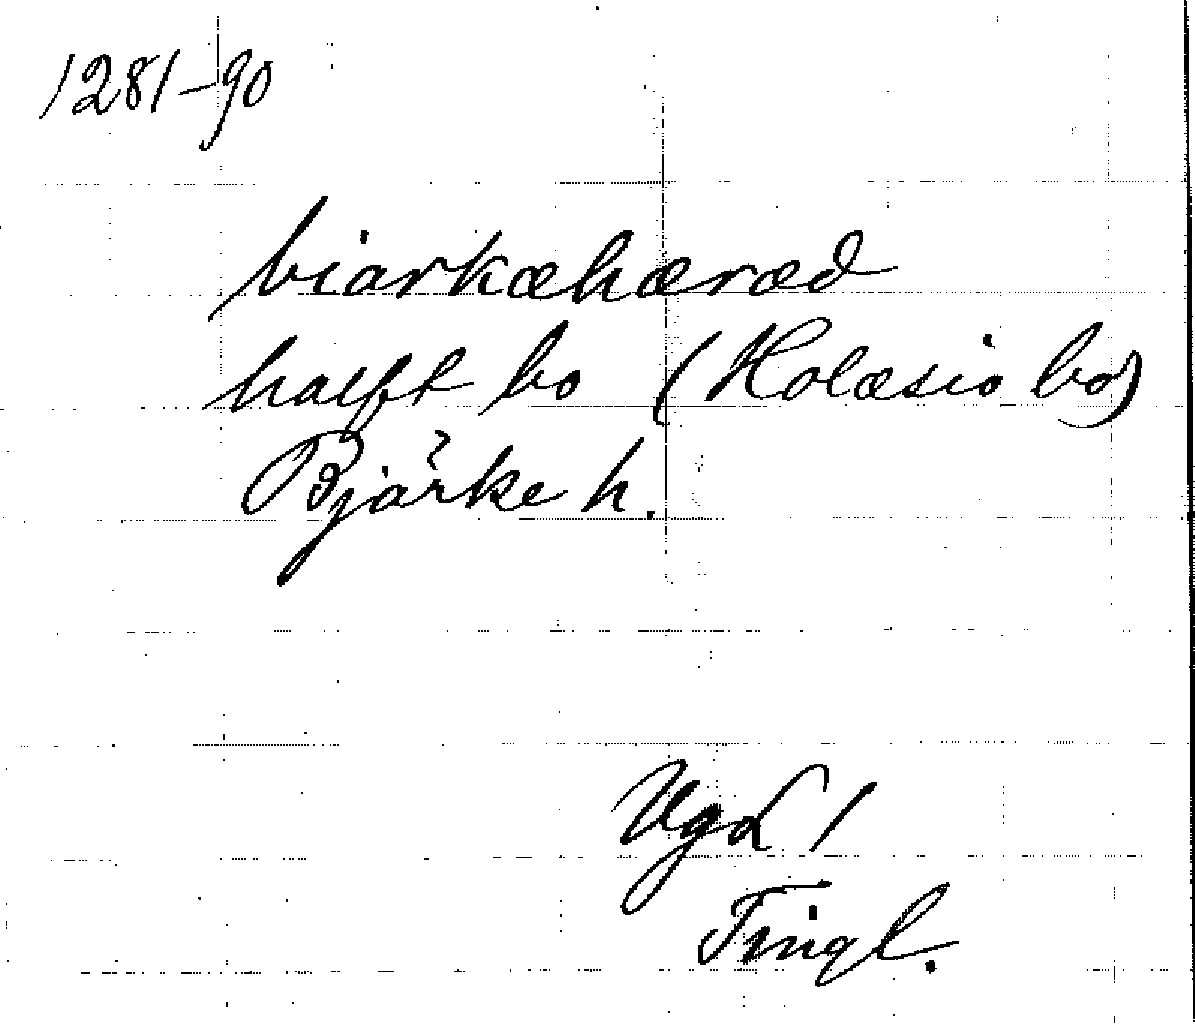 1281-90
biarkæhæræd
halft bo (Holæsio bo)
Bjärke h.
VgL 1
Tingl.